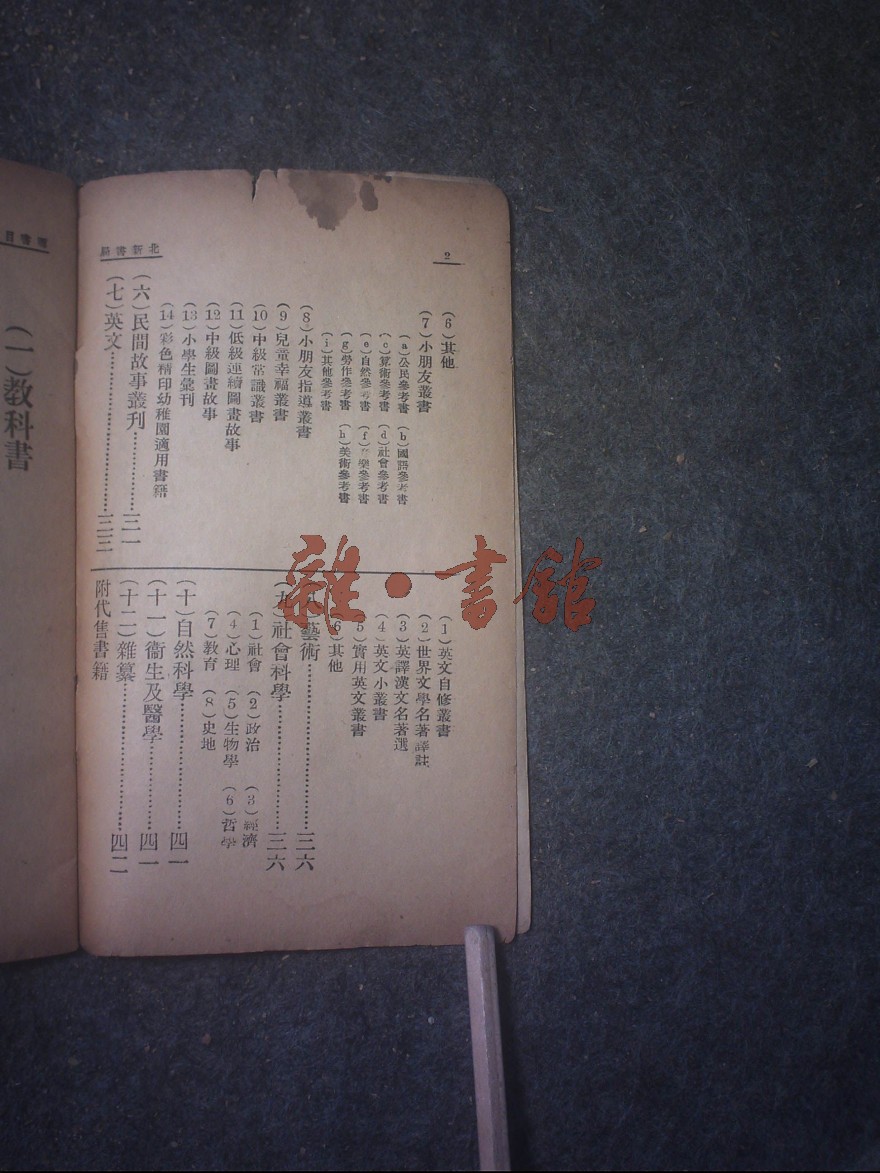 2
北新書局
(6)其他
(7)小朋友叢書
(a)公民參考書 (b)國語參考書
(c)算術參考書 (d)社會參考書
(e)自然參考書 (f)音樂參考書
(g)勞作參考書 (h)美術參考書
(i)其他參考書
(8)小朋友指導叢書
(9)兒童幸福叢書
(10)中級常識叢書
(11)低級連續圖畫故事
(12)中級圖畫故事
(13)小學生彙刊
(14)彩色精印幼稚園適用書籍
(六)民間故事叢刊…………三一
(七)英文……………………三三
(1)英文自修叢書
(2)世界文學名著譯註
(3)英譯漢文名著選
(4)英文小叢書
(5)實用英文叢書
(6)其他
(八)藝術……………………三六
(九)社會科學………………三六
(1)社會 (2)政治 (3)經濟
(4)心理 (5)生物學 (6)哲學
(7)教育 (8)史地
(十)自然科學………………四一
(十一)衞生及醫學…………四一
(十二)雜纂…………………四二
附代售書籍
書目
(一)教科書
雜·書館